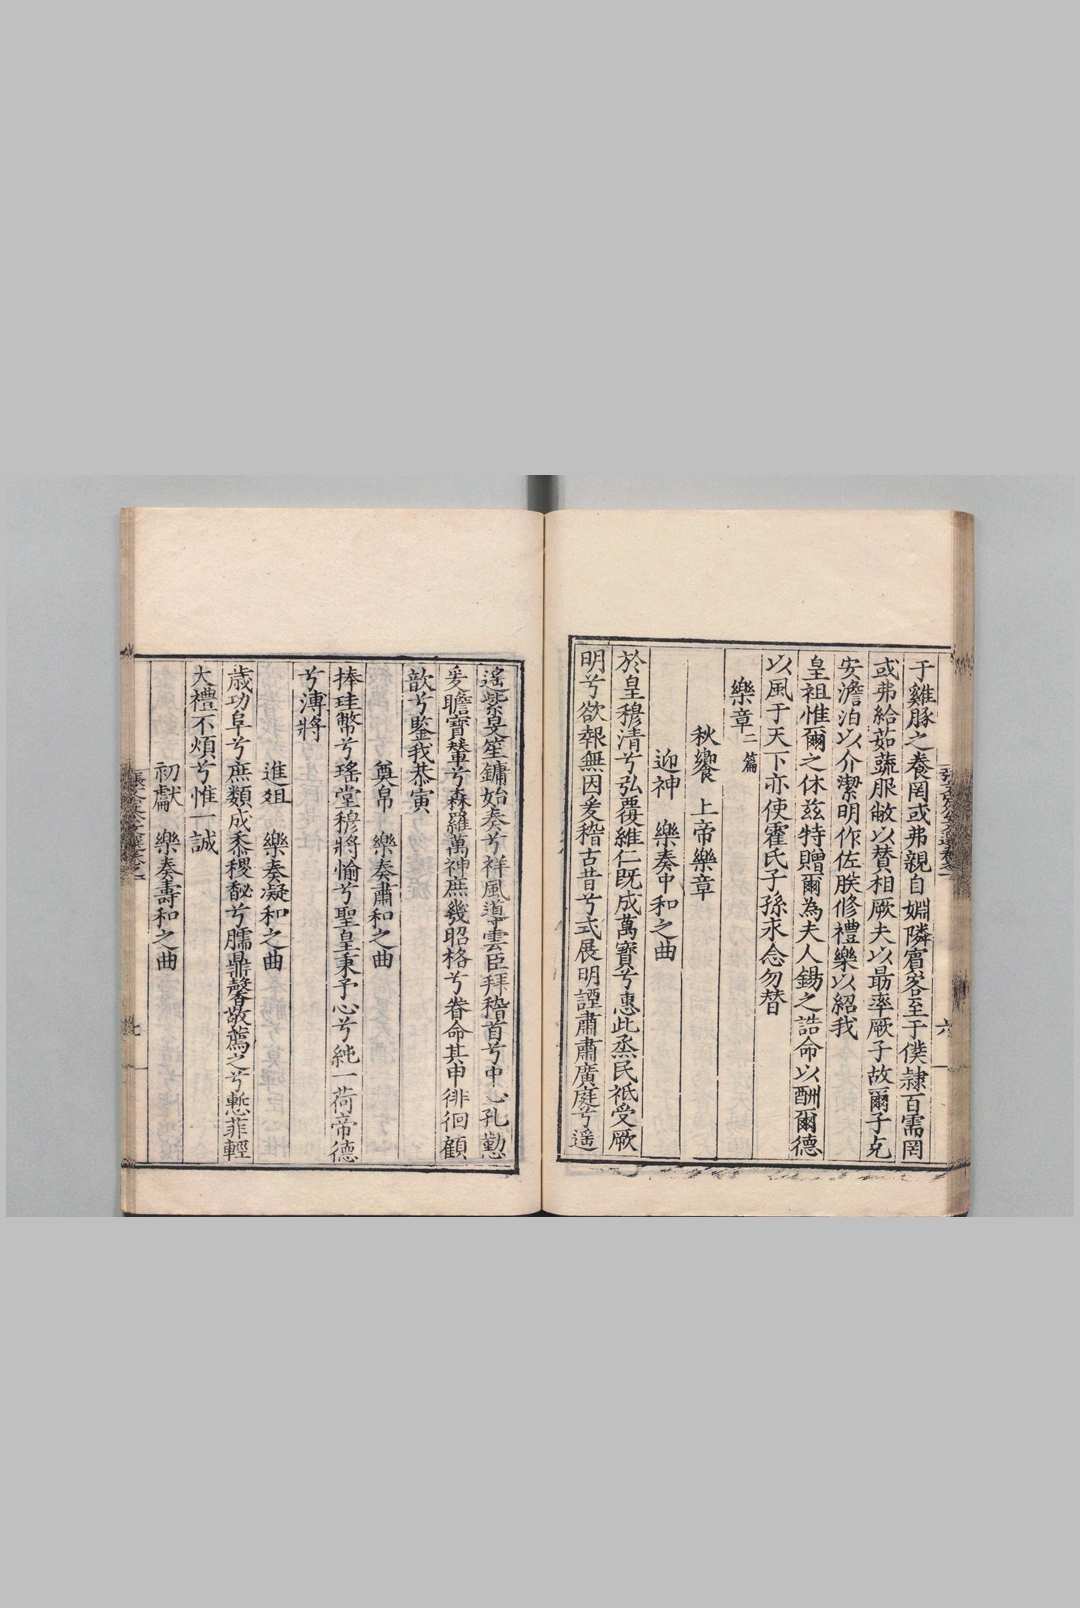 于雞豚之養罔或弗親自婣隣賓客至于僕隷百需罔
或弗給茹蔬服敝以賛相厥夫以勗率厥子故爾子克
安澹泊以介潔明作佐朕修禮樂以紹我
皇祖惟爾之休兹特贈爾為夫人錫之誥命以酬爾德
以風于天下亦使霍氏子孫永念勿替
樂章二篇
秋饗 上帝樂章
迎神 樂奏中和之曲
於皇穆清兮弘覆維仁既成萬寶兮惠此烝民祇受厥
明兮欲報無因爰稽古昔兮式展明諲肅肅廣庭兮遥
遥紫旻笙鏞始奏兮祥風導雲臣拜稽首兮中心孔勤
爰瞻寳輦兮森羅萬神庶幾昭格兮眷命其申徘徊顧
歆兮鑒我恭寅
奠帛 樂奏肅和之曲
捧珪幣兮瑤堂穆將愉兮聖皇秉予心兮純一荷帝德
兮溥將
進爼 樂奏凝和之曲
歳功阜兮庶類成黍稷馝兮臑鼎馨敬薦之兮慙菲輕
大禮不煩兮惟一誠
初獻 樂奏壽和之曲
六
七